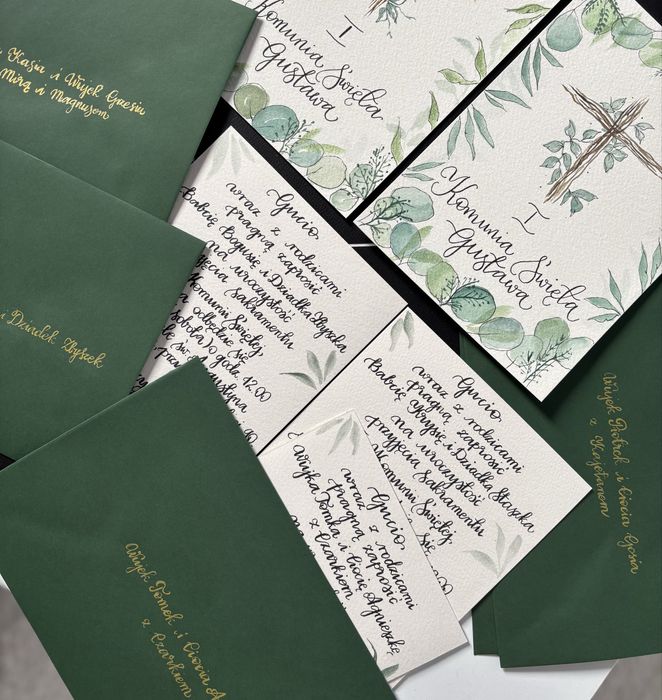 Kasia i Wujek Gresiu
Mirą i Magnusem
i Dziadek Zbyszek
Wujek Tomek i Ciocia A
z Czarkiem
Wujek Piotrek i Ciocia Gosia
z Kajetanem
I
Komunia Święta
Gustawa
I
Komunia Święta
Gustawa
Gucio
wraz z rodzicami
pragną zaprosić
Babcię Bogusię i Dziadka Zbyszka
na uroczystość
Sakramentu
Komunii Świętej
odbędzie się
sobota) o godz. 12.00
św. Augustyna
Gucio
wraz z rodzicami
pragną zaprosić
Babcię Krysię i Dziadka Staszka
na uroczystość
przyjęcia Sakramentu
Komunii Świętej
się
Gucio
wraz z rodzicami
pragną zaprosić
Wujka Tomka i Ciocię Agnieszkę
z Czarkiem